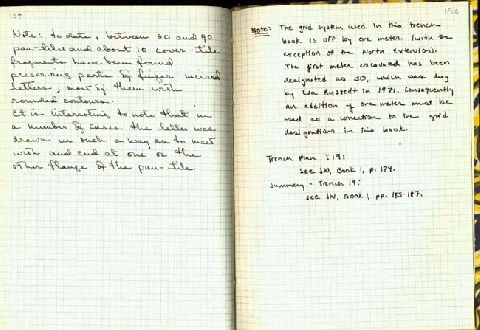 Note: to date, between 80 and 90
pan-tiles and about 10 cover tile
fragments have been found
preserving parts of finger incised
letters, most of them with
rounded contours.
It is interesting to note that in
a number of cases the letter was
drawn in such a way as to meet
with and end at one or the
other flange of the pan-tile
156
Note: The grid system used in this trench-
book is off by one meter (with the
exception of the North Extension).
The first meter excavated has been
designated as 30, which was dug
by in 1971. Consequently
an addition of one meter must be
used as a correction to the grid
designations in this book.
Trench Plan:
see JW, Book I, p. 184.
Summary - Trench 19:
see JW, Book I, pp. 185-187.